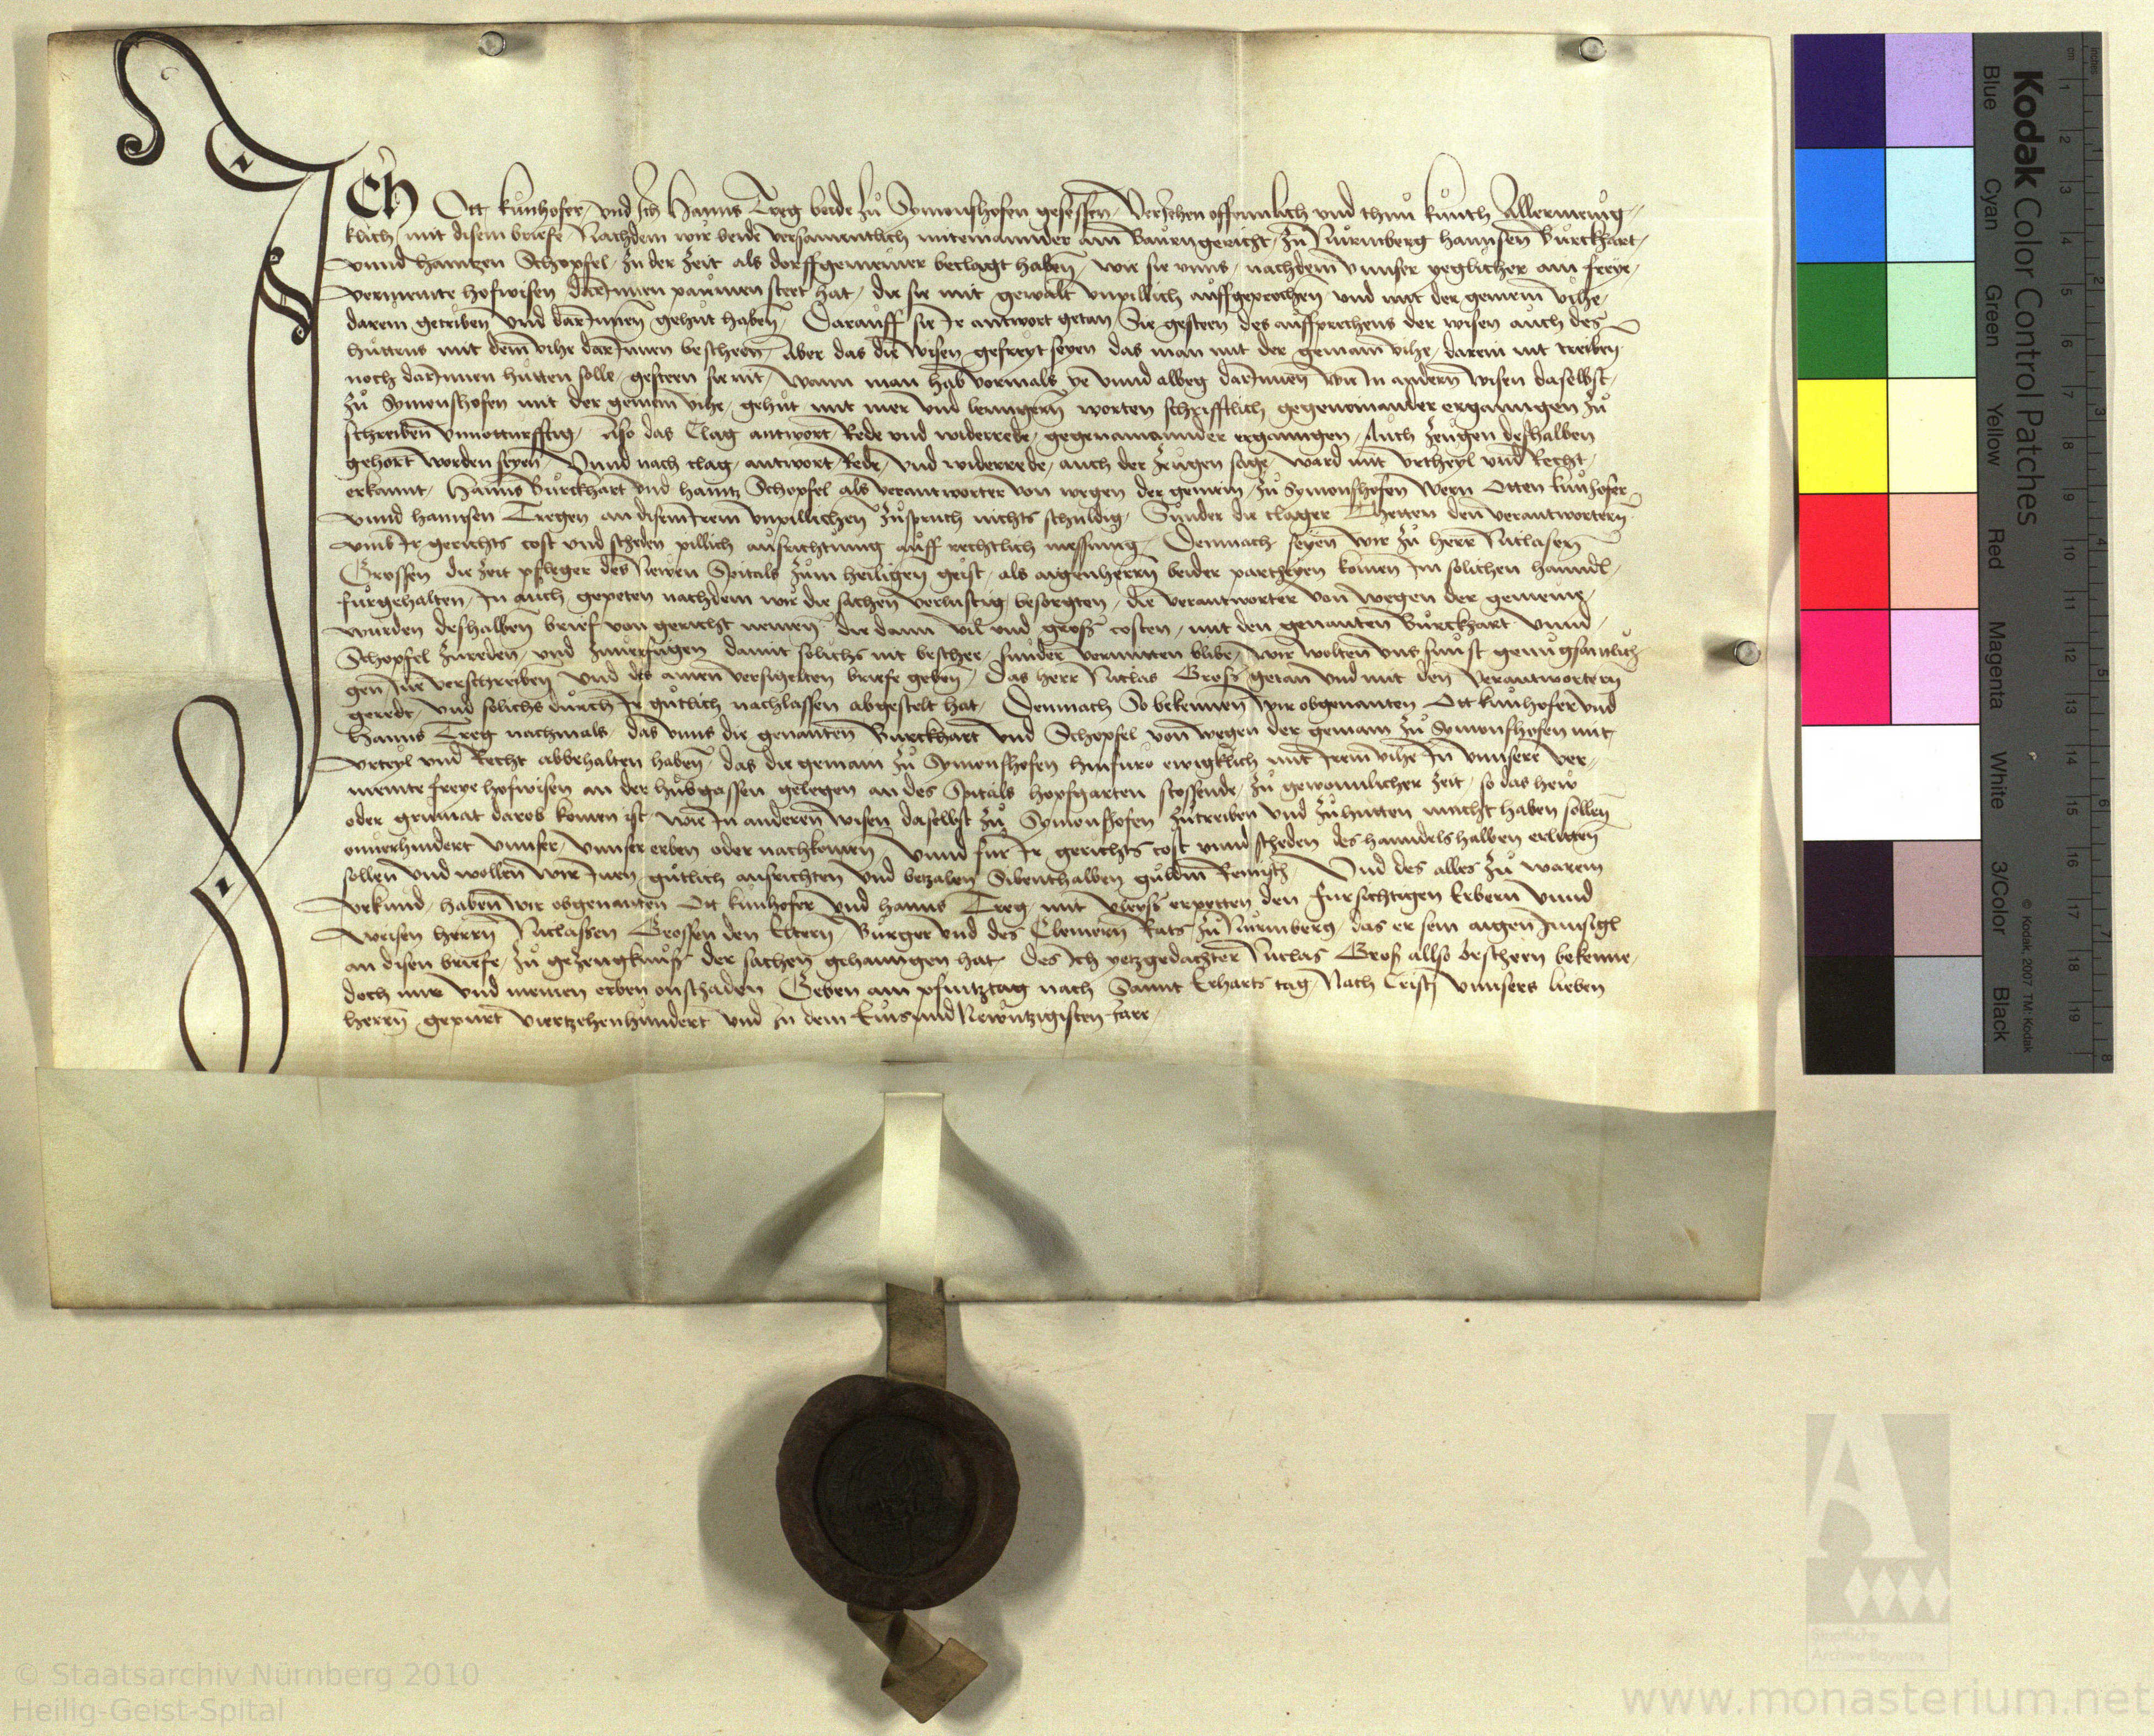 Ich Ott kunhofer, und Ich Hanns Treg beide zů Symonshofen gesessen, Veriehen offennlich und thun kunth Allermenig-
klich mit disem briefe, Nachdem wir beide versamentlich miteinannder am Baurngericht, zů Nurmberg hannsen Burckhart,
unnd hanntzen Schopfel, zu der zeit als dorffgemeiner beclagt haben, wie sie unns, nachdem unnser yeglicher ain freye,
vermeinte hofwisen darInnen paumen steet hat, die sie mit gewalt unpillich auffgeprochen, und mit der gemein vihe,
darein getriben und darInnen gehut haben, Darauff sie Ir antwort getan, Sie gesteen des auffprechens der wisen auch des
huttens mit dem vihe darInnen bescheen, Aber das die wisen gefreyt seyen das man mit der gemain vihe, darein nit treiben
noch darInnen hutten solle, gesteen sie nit, wann man hab vormals ye unnd albeg darInnen wie In andern wisen daselbst,
zů Symonshofen mit der gemein vihe, gehut mit mer und lenngern worten schrifftlich gegeneinander erganngen zů
schreiben unnotturfftig, Also das Clag antwort, Rede und widerrede, gegeneinannder erganngen, Auch zeugen deshalben
gehort worden seyen, Unnd nach clag, antwort, Rede, und widerrede, auch der zeugen sage, ward mit urtheyl und Recht,
erkannt, Hanns Burckhart und hanntz Schopfel als verantworter von wegen der gemein, zů Symonshofen wern Otten kunhofer
unnd hannsen Tregen an disem Irem unpillichen zůspruch nichts schuldig, Sunder die clager Theten den verantwortern
umb Ir gerichts cost und scheden pillich außrichtung auff rechtlich messung, Demnach seyen wir zů herrn Niclasen
Grossen die zeit pfleger des Newen Spitals zum heiligen geist, als aigenherrn beider partheyen komen Im solichen hanndel,
furgehalten, In auch gepeten nachdem wir die sachen verlustig besorgten, die verantworter von wegen der gemeine,
wurden deshalben brief von gericht nemen, die dann vil und groß costen, mit den genanten Burckhart unnd,
Schopfel zureden, und zuuerfugen damit solichs nit beschee, sunder vermitten blibe, wir wolten uns sunst genugsamlich
gen Ine verschreiben und des ainen versigelten briefe geben, Das herr Niclas Groß getan und mit den Verantwortern
geredt, und solichs durch Ir gutlich nachlassen abgestelt hat, Demnach So bekennen wir obgenanten Ott kunhofer und
Hanns Treg nachmals, das unns die genanten Burckhart und Schopfel von wegen der gemain zů Symonshofen mit,
urteyl und Recht abbehalten haben, das die gemain zů Symonshofen hinfuro ewigklich mit Irem vihe In unnsere ver-
meinte freye hofwisen an der hubgassen gelegen an des Spitals hopfgarten stossende, zů gewonnlicher zeit, so das hew
oder grumat darob komen ist, wie In anderen wisen daselbst zů Symonshofen zutreiben und zuhutten macht haben sollen
onuerhindert unnser, unnser erben oder nachkomen, Unnd fur Ir gerichts cost unnd scheden des hanndels halben erlitten
sollen und wollen wir Inen gutlich außrichten und betzalen Sibenthalben guldin Reinisch, Und des alles zů warem
urkund, haben wir obgenanten Ott kunhofer und Hanns Treg, mit vleyß erpetten den fursichtigen Erbern unnd
weisen herrn Niclassen Grossen den Eltern Burger und des Clainern Rats zů Nurmberg, das er sein aigen Innsigl
an disen briefe, zů gezeugknuß der sachen gehanngen hat, Des Ich yetzgedachter Niclas Groß allso bescheen bekenne,
doch mir und meinen erben onschaden, Geben am pfintztag nach Sannt Erharts tag, Nach Cristi unnsers lieben
herrn gepurt viertzehenhundert und In dem Einsundnewntzigisten Jare,
Kodak Color Control Patches
Blue Cyan Green Yellow Red Magenta White 3/Color Black
© Kodak, 2007 TM: Kodak
cm 1 2 3 4 5 6 7 8 9 10 11 12 13 14 15 16 17 18 19
inches 1 2 3 4 5 6 7 8
Staatliche
Archive Bayerns
© Staatsarchiv Nürnberg 2010
Heilig-Geist-Spital
www.monasterium.net